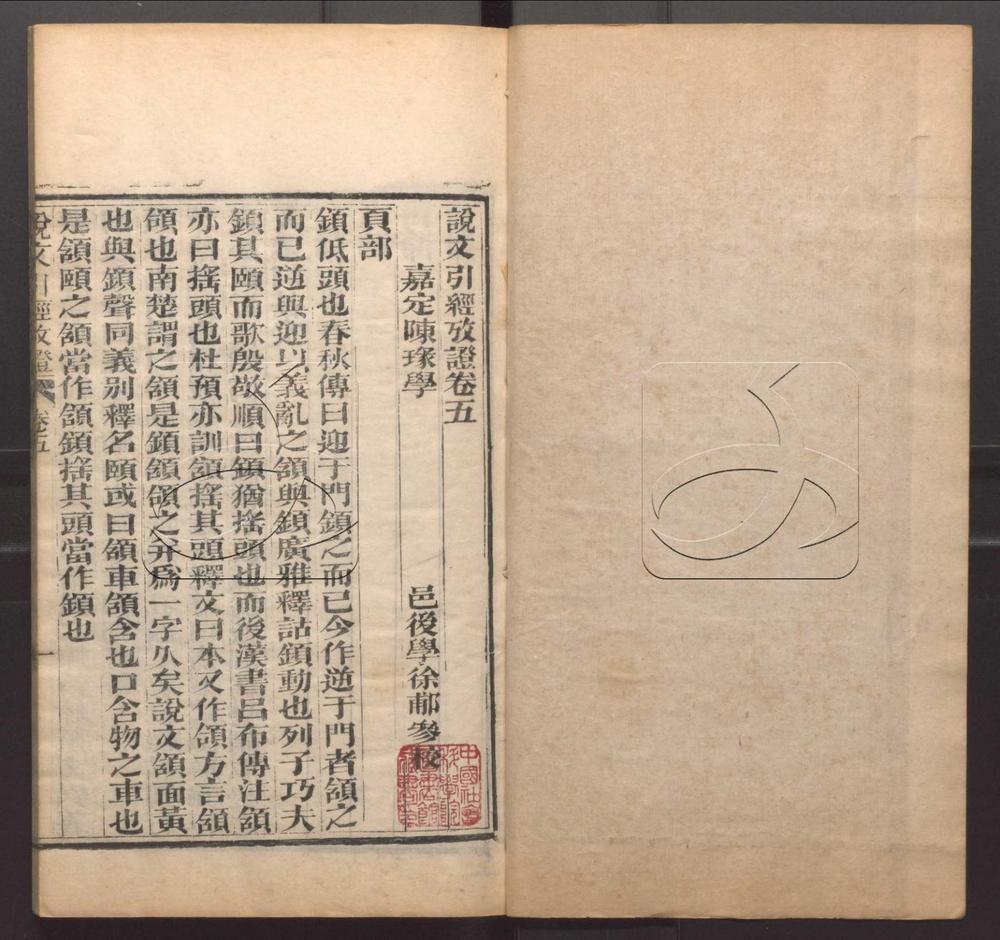 說文引經攷證卷五
嘉定陳瑑學 邑後學徐郙參校
頁部
顉低頭也春秋傳曰迎于門顉之而已今作逆于門者頷之
而已逆與迎以義亂之頷與顉廣雅釋詁顉動也列子巧夫
顉其頤而歌殷敬順曰顉猶搖頭也而後漢書呂布傳注頷
亦曰搖頭也杜預亦訓頷搖其頭釋文曰本又作頜方言頷
頜也南楚謂之頷是顉頷頜之并為一字久矣說文頷面黃
也與顉聲同義别釋名頤或曰頷車頷含也口含物之車也
是頷頤之頷當作頜顉搖其頭當作顉也
說文引經攷證 卷五 一
中國社會科學院